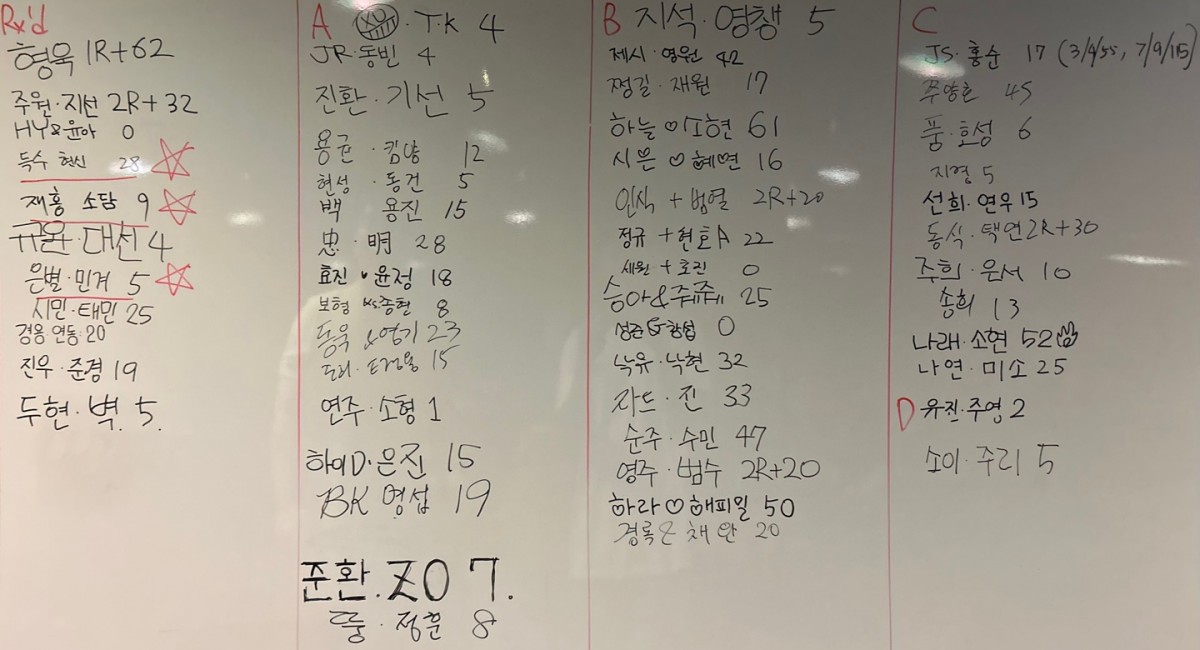 Rx'd
형욱 1R+62
주원·지선 2R+32
HY&윤아 0
득수 현신 28
재홍 소담 9
규원·대선 4
은별·민겨 5
시민·태민 25
경용 연동·20
진우·준경 19
두현·벽. 5.
A ·T.K 4
JR·동빈 4
진환·기선 5
용균·킴양 12
현성·동건 5
백 용진 15
忠·明 28
효진 윤정 18
보형 종현 8
동욱 &영기 23
도리· 15
연주·소형 1
하이D·은진 15
BK 영섭 19
준환.ZO 7.
뚱·정훈 8
B 지석·영챙 5
제시·영원 42
쩡길·재원 17
하늘♡소현 61
시은♡혜면 16
인식+범열 2R+20
정규+현호A 22
세원+호진 0
승아&쥬쥬 25
성준&창섭 0
낙유·낙현 32
자드·진 33
순주·수민 47
영주·범수 2R+20
하라♡해피밀 50
경록 채안 20
C
JS·홍순 17 (3/4/55, 7/9/115)
주양호 45
품·효성 6
지영 5
선희·연우 15
동식·택언 2R+30
주희·은서 10
송희 13
나래·소현 52
나연·미소 25
D 유진·주영 2
소이·주리 5